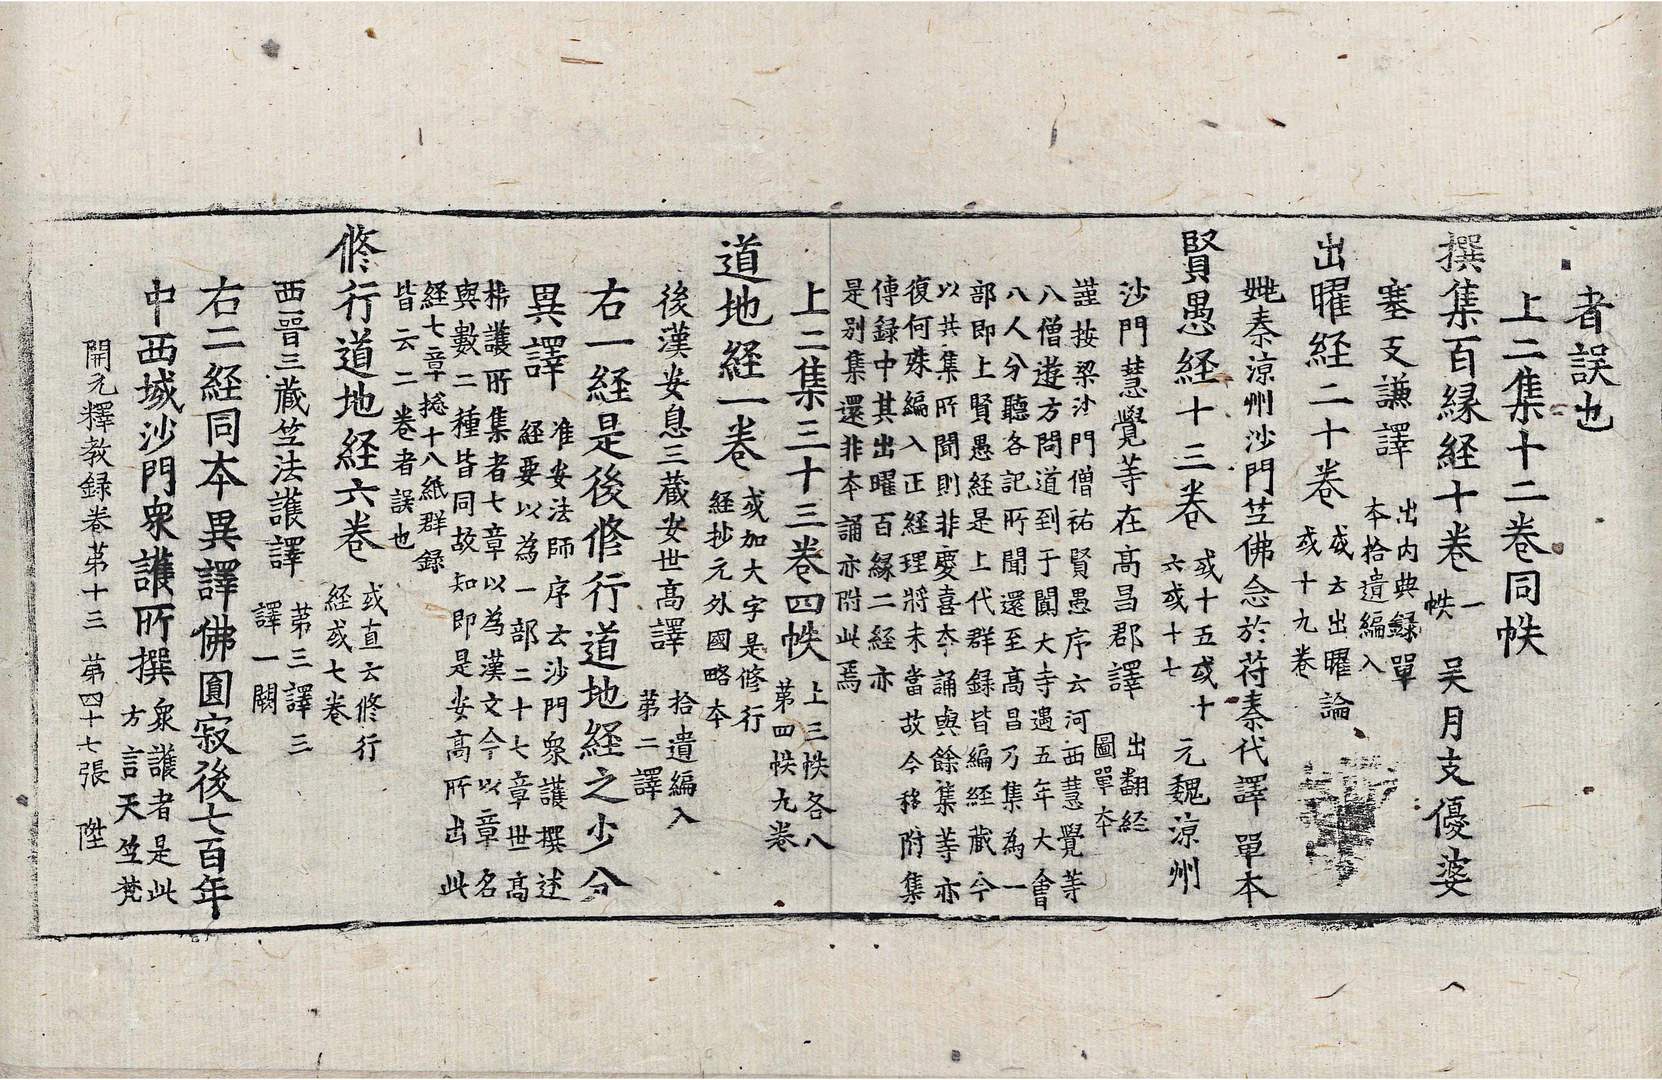 者誤也
上二集十二卷同帙
撰集百縁経十卷 一帙 吴月支優婆
塞支謙譯 出内典録單本拾遺編入
出曜経二十卷 或云出曜論或十九卷
姚秦涼州沙門竺佛念於苻秦代譯 單本
賢愚経十三卷 或十五或十六或十七 元魏涼州
沙門慧覺等在髙昌郡譯 出翻経圖單本
謹按梁沙門僧祐賢愚序云河西慧覺等
八僧遊方問道到于闐大寺遇五年大會
八人分聽各記所聞還至髙昌乃集為一
部即上賢愚経是上代群録皆編経藏今
以共集所聞則非慶喜本誦與餘集等亦
復何殊編入正経理將未當故今移附集
傳録中其出曜百縁二経亦
是别集還非本誦亦附此焉
上二集三十三卷四帙 上三帙各八第四帙九卷
道地経一卷 或加大字是修行経抄元外國略本
後漢安息三藏安世髙譯 拾遺編入第二譯
右一経是後修行道地経之少分
異譯 准安法師序云沙門衆護撰述
経要以為一部二十七章世髙
㭊護所集者七章以為漢文今以章名
與數二種皆同故知即是安髙所出此
経七章揔十八紙群録
皆云二卷者誤也
修行道地経六卷 或直云修行経或七卷
西晉三藏竺法護譯 第三譯三譯一闕
右二経同本異譯佛圓寂後七百年
中西域沙門衆護所撰 衆護者是此方言天竺梵
開元釋教録卷第十三 第四十七張 陞